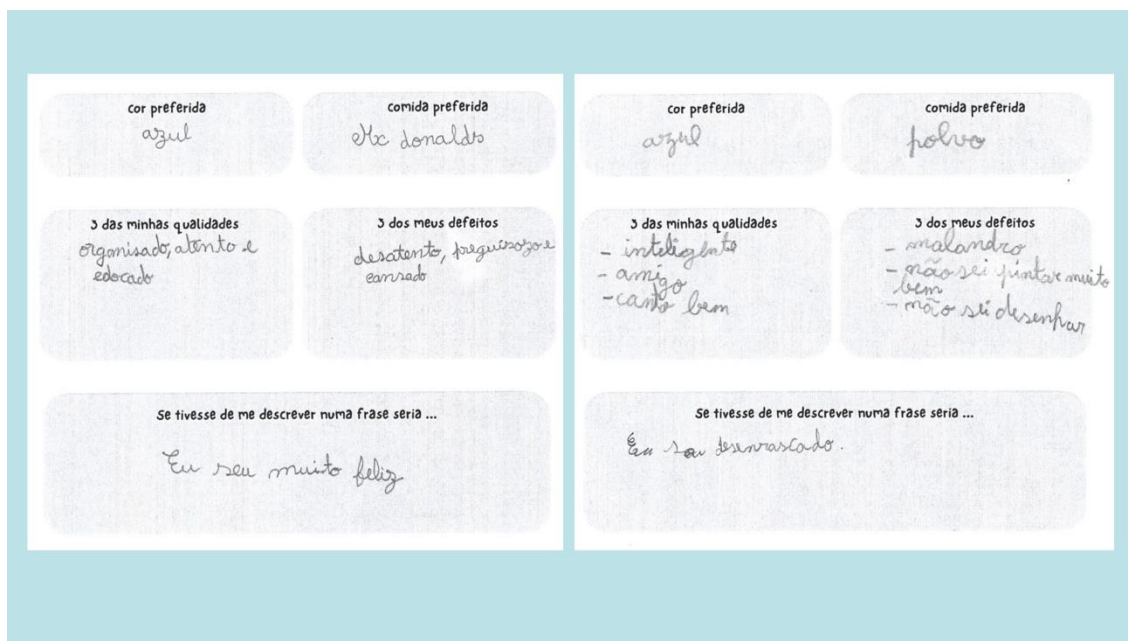 cor preferida
azul
comida preferida
Mc donalds
3 das minhas qualidades
organisado, atento e
edocado
3 dos meus defeitos
desatento, preguisozo e
cansado
Se tivesse de me descrever numa frase seria ...
Eu seu muito feliz
cor preferida
azul
comida preferida
polvo
3 das minhas qualidades
- inteligente
- amigo
- canto bem
3 dos meus defeitos
- malandro
- não sei pintar muito
bem
- não sei desenhar
Se tivesse de me descrever numa frase seria ...
Eu sou desenrascado.